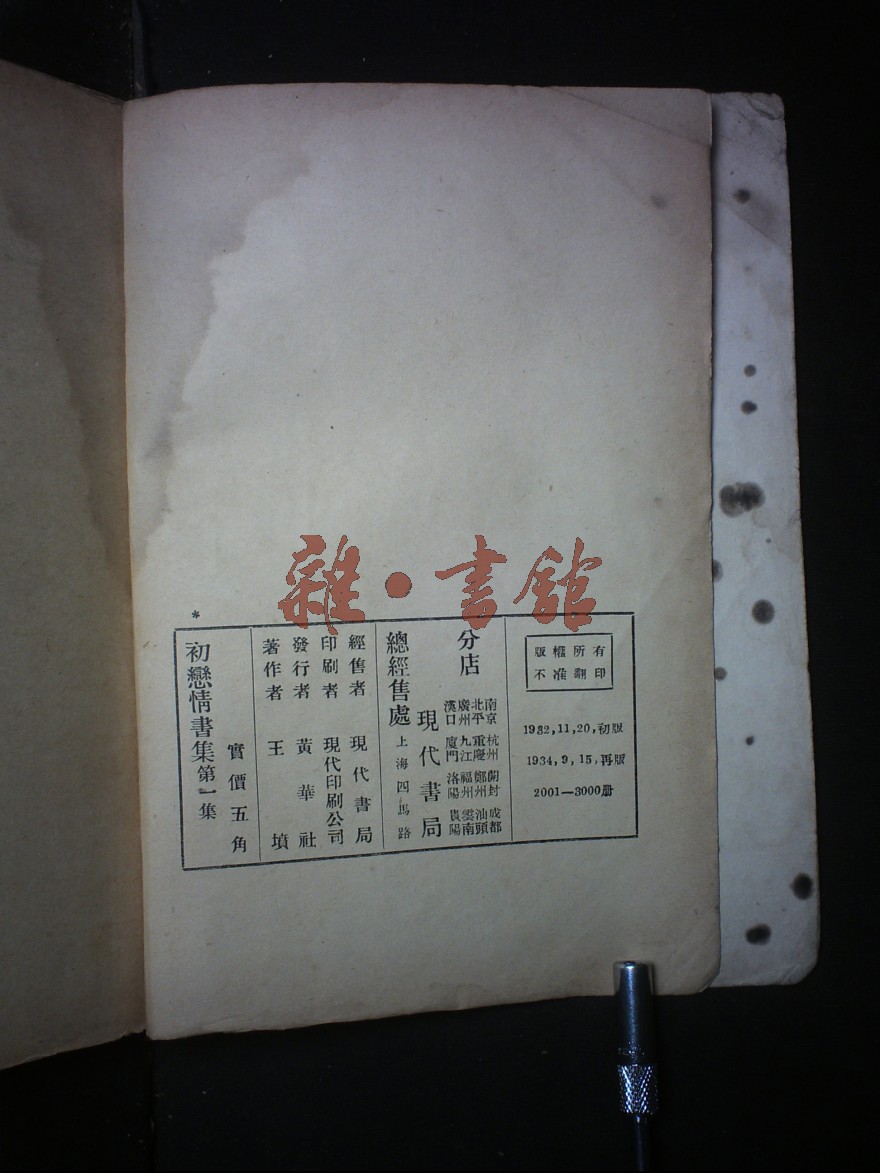 雜·書館
版權所有
不准翻印
1932,11,20,初版
1934,9,15,再版
2001—3000册
分店
南京 杭州 開封 成都
北平 重慶 鄭州 汕頭
廣州 九江 福州 雲南
漢口 廈門 洛陽 貴陽
現代書局
總經售處 上海四馬路
經售者 現代書局
印刷者 現代印刷公司
發行者 黃華社
著作者 王墳
實價五角
*
初戀情書集第一集